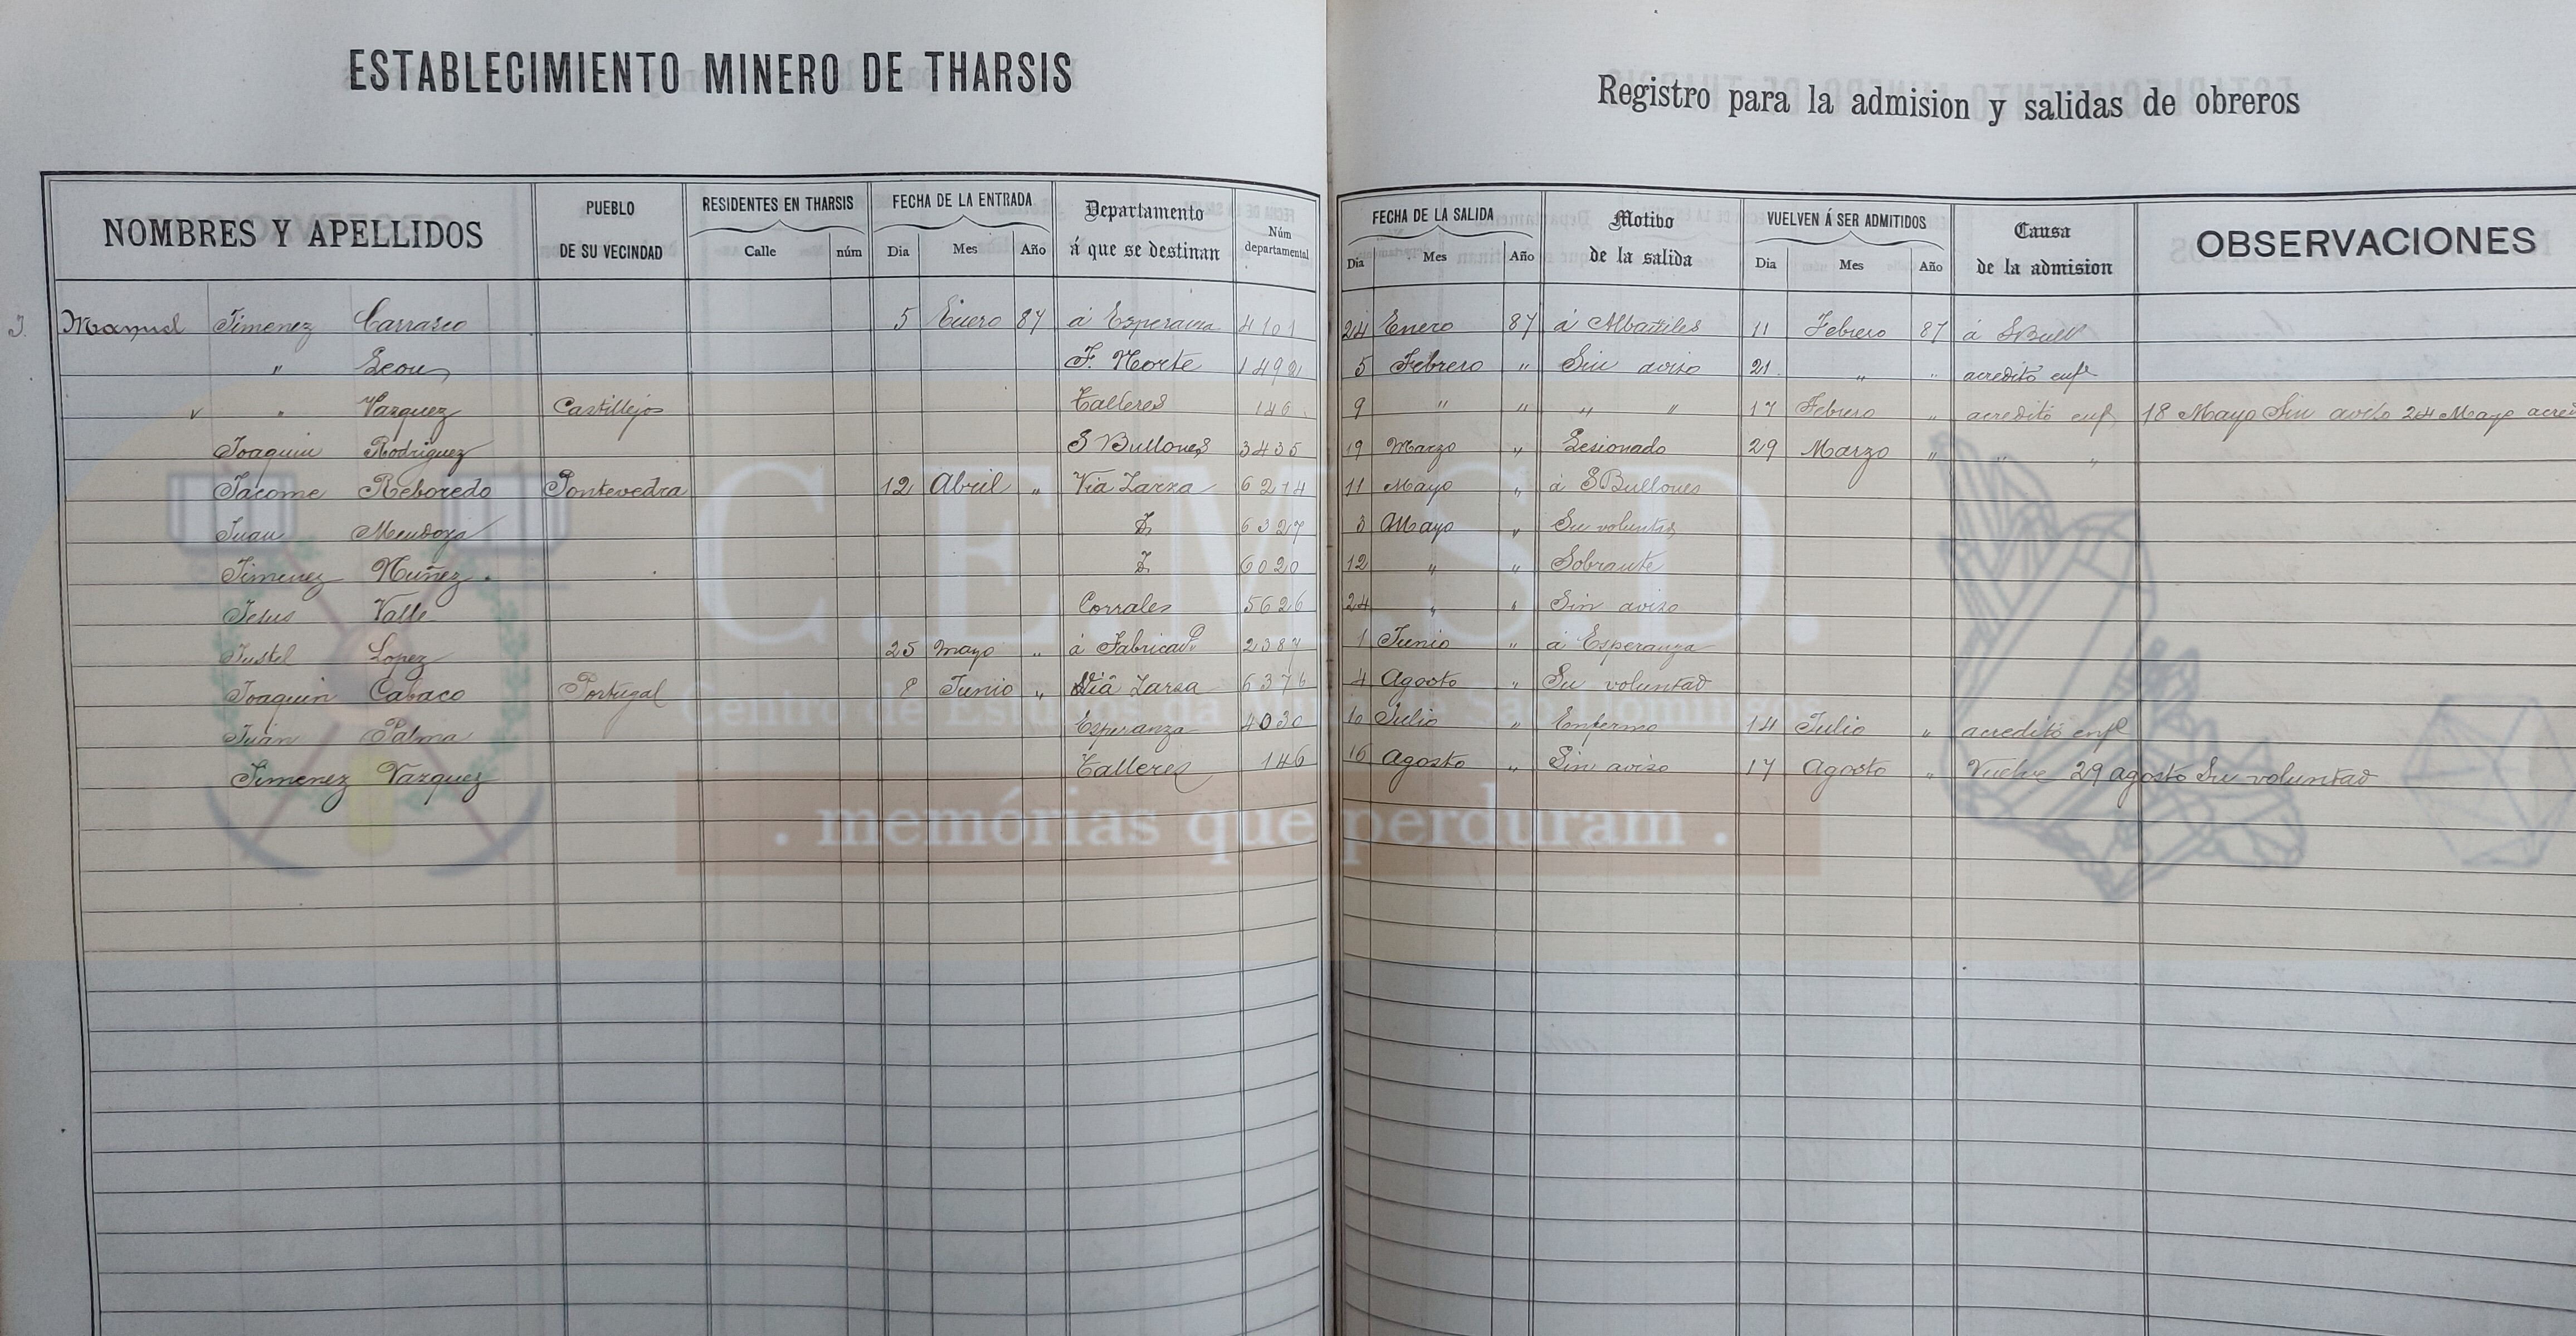 ESTABLECIMIENTO MINERO DE THARSIS
Registro para la admision y salidas de obreros
NOMBRES Y APELLIDOS
PUEBLO
DE SU VECINDAD
RESIDENTES EN THARSIS
Calle núm
FECHA DE LA ENTRADA
Dia Mes Año
Departamento
á que se destinan
Núm
departamental
FECHA DE LA SALIDA
Dia Mes Año
Motivo
de la salida
VUELVEN Á SER ADMITIDOS
Dia Mes Año
Causa
de la admision
OBSERVACIONES
J. Manuel Jimenez Carrasco 5 Enero 87 á Esperanza 4101 24 Enero 87 á Albañiles 11 Febrero 87 á SBull
" Leon F. Norte 5 Febrero " Sin aviso 21 " " acreditó enfe
v " Vazquez Castillejos Talleres 146 9 " " " " 17 Febrero " acreditó enf 18 Mayo Sin aviso 24 Mayo acred
Joaquin Rodriguez S Bullones 3435 19 Marzo " Lesionado 29 Marzo " " "
Jacome Reboredo Pontevedra 12 Abril " Via Zarza 6214 11 Mayo " á SBullones
Juan Mendoza 6327 3 Mayo " Su volunta
Jimenez Nuñez 6020 12 " " Sobrante
Jesus Valle Corrales 5626 24 " " Sin aviso
Justel Lopez 25 mayo " á Fabrica 2387 1 Junio " á Esperanza
Joaquin Cabaco Portugal 8 Junio " Via Zarza 6376 4 Agosto " Su voluntad
Juan Palma Esperanza 4030 10 Julio " Enfermo 14 Julio " acreditó enfe
Jimenez Vazquez Talleres 146 16 Agosto " Sin aviso 17 Agosto " Vuelve 29 agosto Su voluntad
C.E.M.S.D.
Centro de Estudos da Mina de São Domingos
. memórias que perduram .